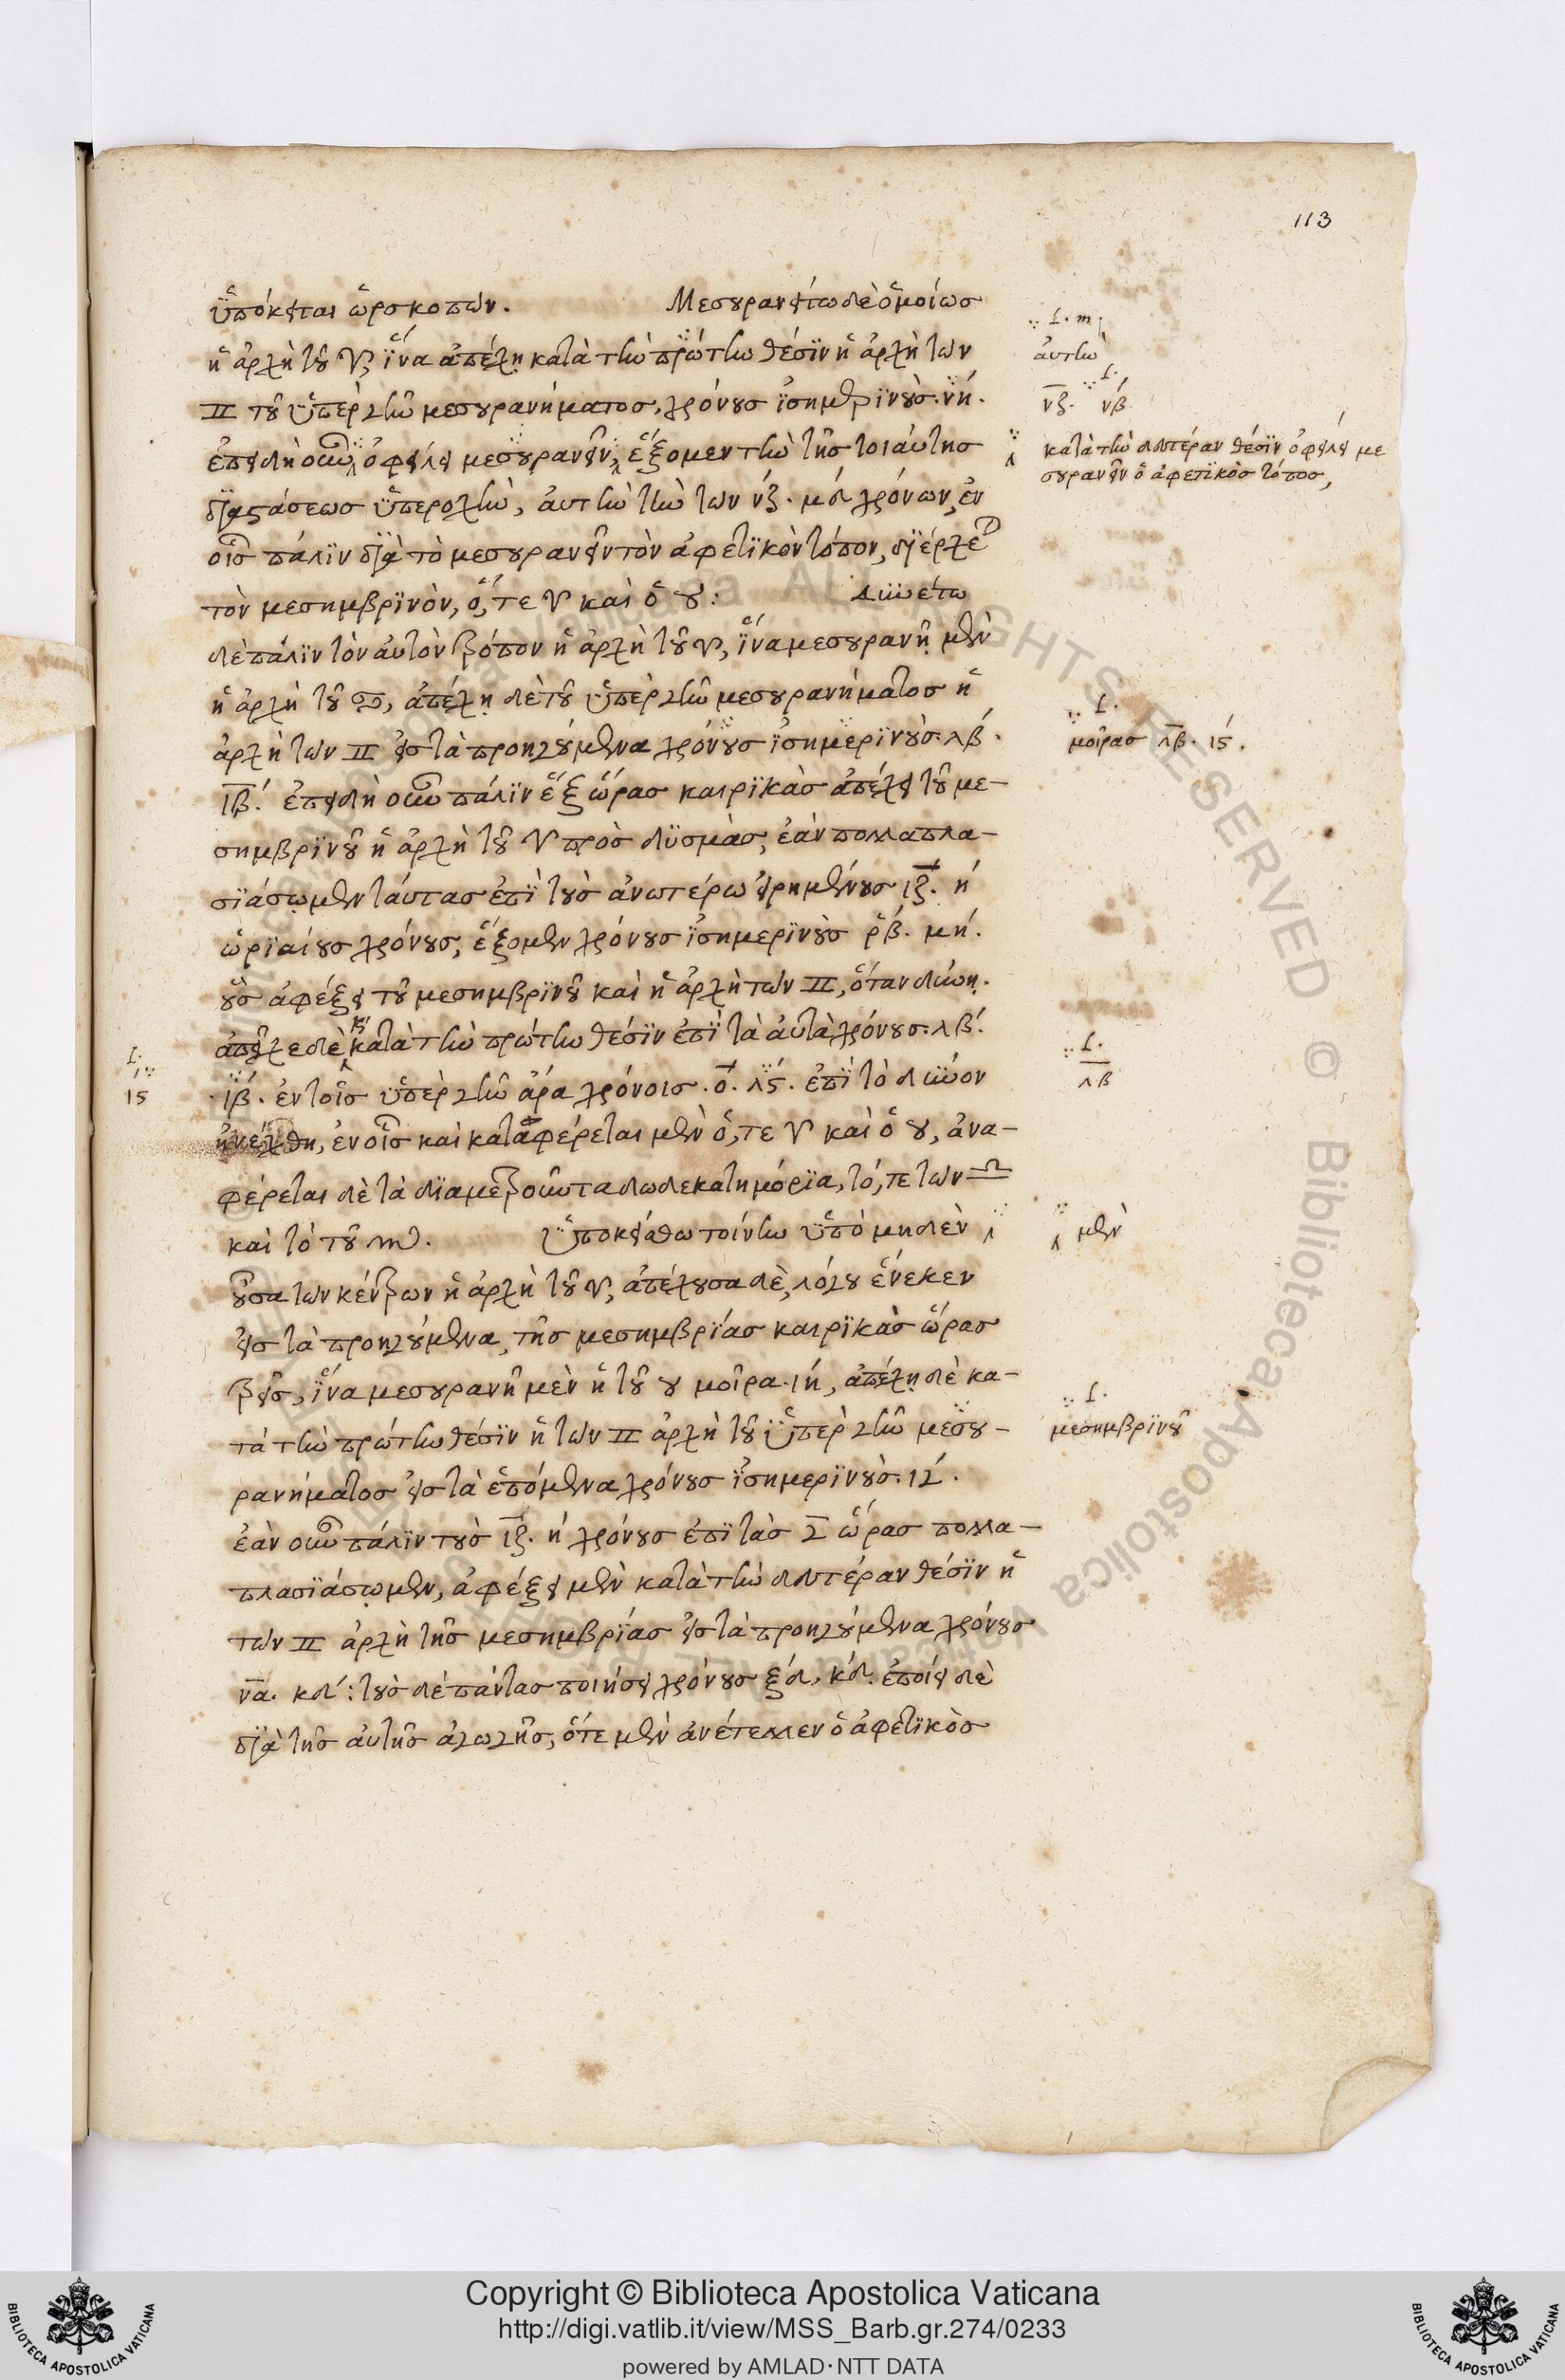 113
ὑπόκειται ὡροσκοπῶν. Μεσουρανείτω δὲ ὁμοίως
ἡ ἀρχὴ τοῦ ♈, ἵνα ἀπέχῃ κατὰ τὴν πρώτην θέσιν ἡ ἀρχὴ τῶν
♊ τοῦ ὑπὲρ γῆν μεσουρανήματος, χρόνους ἰσημερινοὺς. νή.
ἐπειδὴ οὖν ὀφείλει μεσουρανεῖν, ἕξομεν τὴν τῆς τοιαύτης
διαστάσεως ὑπεροχὴν, αὐτὴν τὴν τῶν νζ. μδ χρόνων, ἐν
οἷς πάλιν διὰ τὸ μεσουρανεῖν τὸν ἀφετικὸν τόπον, διέρχεται
τὸν μεσημβρινὸν, ὅ, τε ♈ καὶ ὁ ♉: Δυνέτω
δὲ πάλιν τὸν αὐτὸν τρόπον ἡ ἀρχὴ τοῦ ♈, ἵνα μεσουρανῇ μὲν
ἡ ἀρχὴ τοῦ ♋, ἀπέχῃ δὲ τοῦ ὑπὲρ γῆν μεσουρανήματος ἡ
ἀρχὴ τῶν ♊ εἰς τὰ προηγούμενα χρόνους ἰσημερινοὺς. λβ.
ιβ. ἐπειδὴ οὖν πάλιν ἓξ ὥρας καιρικὰς ἀπέχει τοῦ με-
σημβρινοῦ ἡ ἀρχὴ τοῦ ♈ πρὸς δυσμὰς, ἐὰν πολλαπλα-
σιάσωμεν ταύτας ἐπὶ τοὺς ἀνωτέρω εἰρημένους ιζ. ή
ὡριαίους χρόνους, ἕξομεν χρόνους ἰσημερινοὺς ρβ. μή.
οὓς ἀφέξει τοῦ μεσημβρινοῦ καὶ ἡ ἀρχὴ τῶν ♊, ὅταν δύνῃ.
ἀπεῖχε δὲ καὶ κατὰ τὴν πρώτην θέσιν ἐπὶ τὰ αὐτὰ χρόνους. λβ.
ιβ. ἐν τοῖς ὑπὲρ γῆν ἄρα χρόνοις. ο. λς. ἐπὶ τὸ δῦνον
ἠνέχθη, ἐν οἷς καὶ καταφέρεται μὲν ὅ, τε ♈ καὶ ὁ ♉, ἀνα-
φέρεται δὲ τὰ διαμετροῦντα δωδεκατημόρια, τό, τε τῶν ♎
καὶ τὸ τοῦ ♏. Ὑποκείσθω τοίνυν ὑπὸ μηδὲν
οὖσα τῶν κέντρων ἡ ἀρχὴ τοῦ ♈, ἀπέχουσα δὲ, λόγου ἕνεκεν
εἰς τὰ προηγούμενα, τῆς μεσημβρίας καιρικὰς ὥρας
τρεῖς, ἵνα μεσουρανῇ μὲν ἡ τοῦ ♉ μοῖρα. ιή, ἀπέχῃ δὲ κα-
τὰ τὴν πρώτην θέσιν ἡ τῶν ♊ ἀρχὴ τοῦ ὑπὲρ γῆν μεσου-
ρανήματος εἰς τὰ ἑπόμενα χρόνους ἰσημερινοὺς. ιγ.
ἐὰν οὖν πάλιν τοὺς ιζ. ή χρόνους ἐπὶ τὰς γ ὥρας πολλα-
πλασιάσωμεν, ἀφέξει μὲν κατὰ τὴν δευτέραν θέσιν ἡ
τῶν ♊ ἀρχὴ τῆς μεσημβρίας εἰς τὰ προηγούμενα χρόνους
να. κδ: τοὺς δὲ πάντας ποιήσει χρόνους ξδ. κδ. ἐποίει δὲ
διὰ τῆς αὐτῆς ἀγωγῆς, ὅτε μὲν ἀνέτελλεν ὁ ἀφετικὸς
f. m
αὐτὴν
f.
νζ. νβ
κατὰ τὴν δευτέραν θέσιν ὀφείλει με
σουρανεῖν ὁ ἀφετικὸς τόπος,
f.
μοίρας λβ. ις.
f.
ις
f.
λβ
μὲν
f.
μεσημβρινοῦ
Copyright © Biblioteca Apostolica Vaticana
http://digi.vatlib.it/view/MSS_Barb.gr.274/0233
powered by AMLAD·NTT DATA
BIBLIOTECA APOSTOLICA VATICANA
BIBLIOTECA APOSTOLICA VATICANA